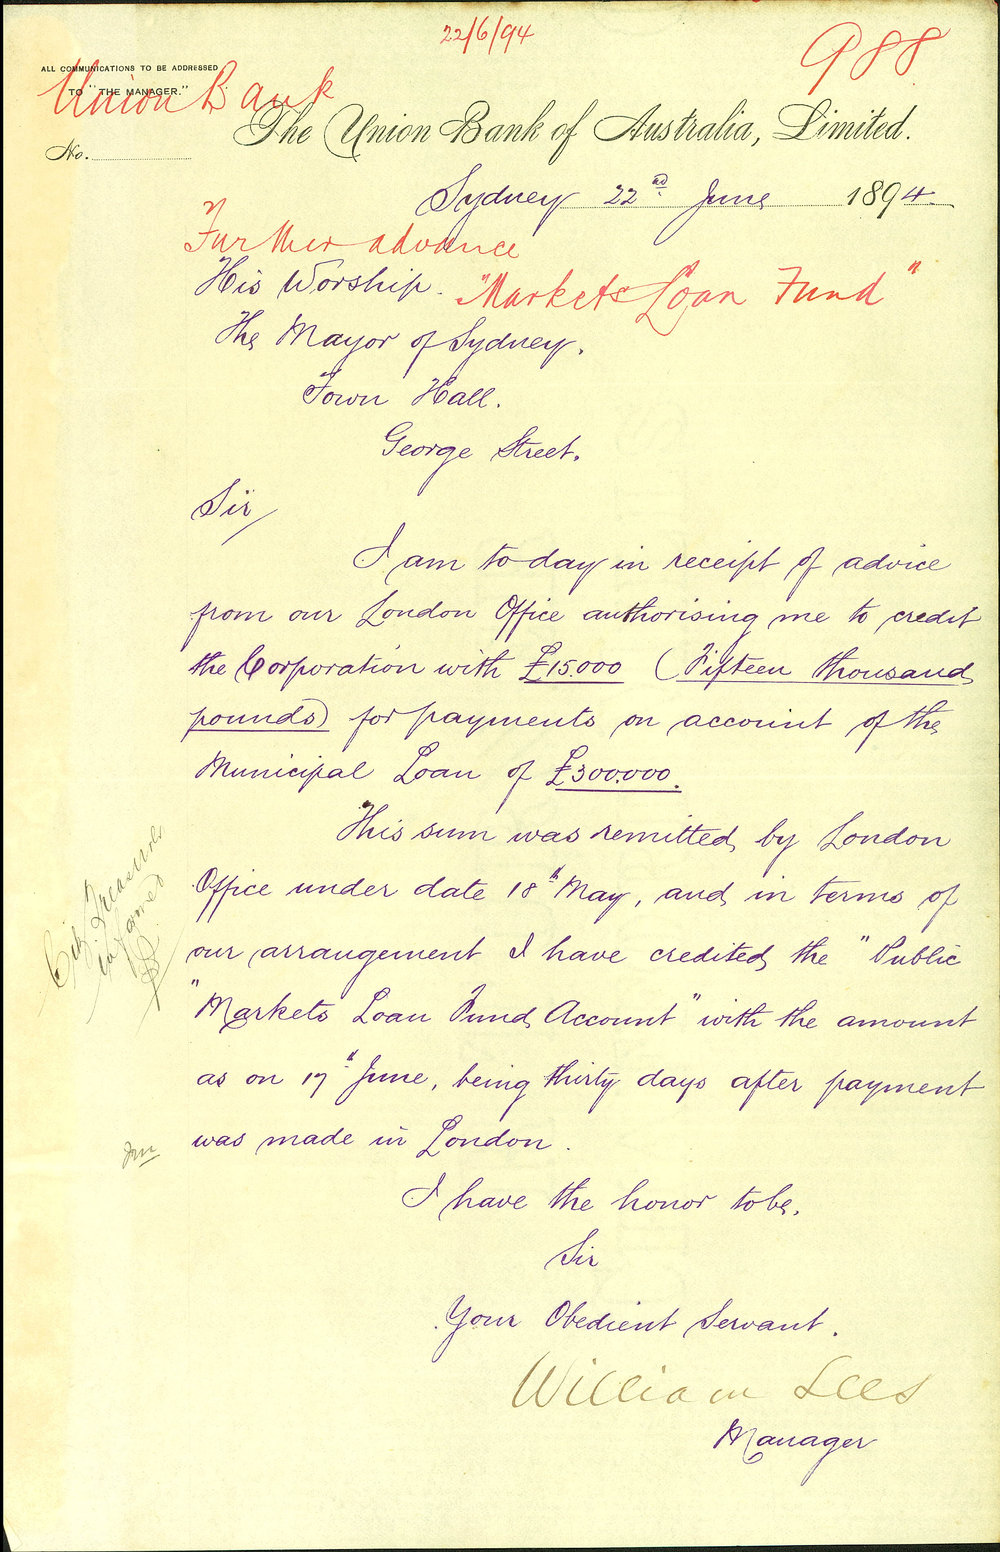 22/6/94
988
ALL COMMUNICATIONS TO BE ADDRESSED
TO "THE MANAGER."
Union Bank
The Union Bank of Australia, Limited.
No.
Sydney 22nd June 1894.
Further advance
"Markets Loan Fund"
His Worship.
The Mayor of Sydney.
Town Hall.
George Street.
Sir
I am to-day in receipt of advice
from our London Office authorising me to credit
the Corporation with £15.000 (Fifteen thousand
pounds) for payments on account of the
Municipal Loan of £300.000.
This sum was remitted by London
Office under date 18th May, and in terms of
our arrangement I have credited the "Public
"Markets Loan Fund Account" with the amount
as on 17th June, being thirty days after payment
was made in London.
City Treasurer
informed
I have the honor to be,
Sir
Your Obedient Servant.
William Lees
Manager